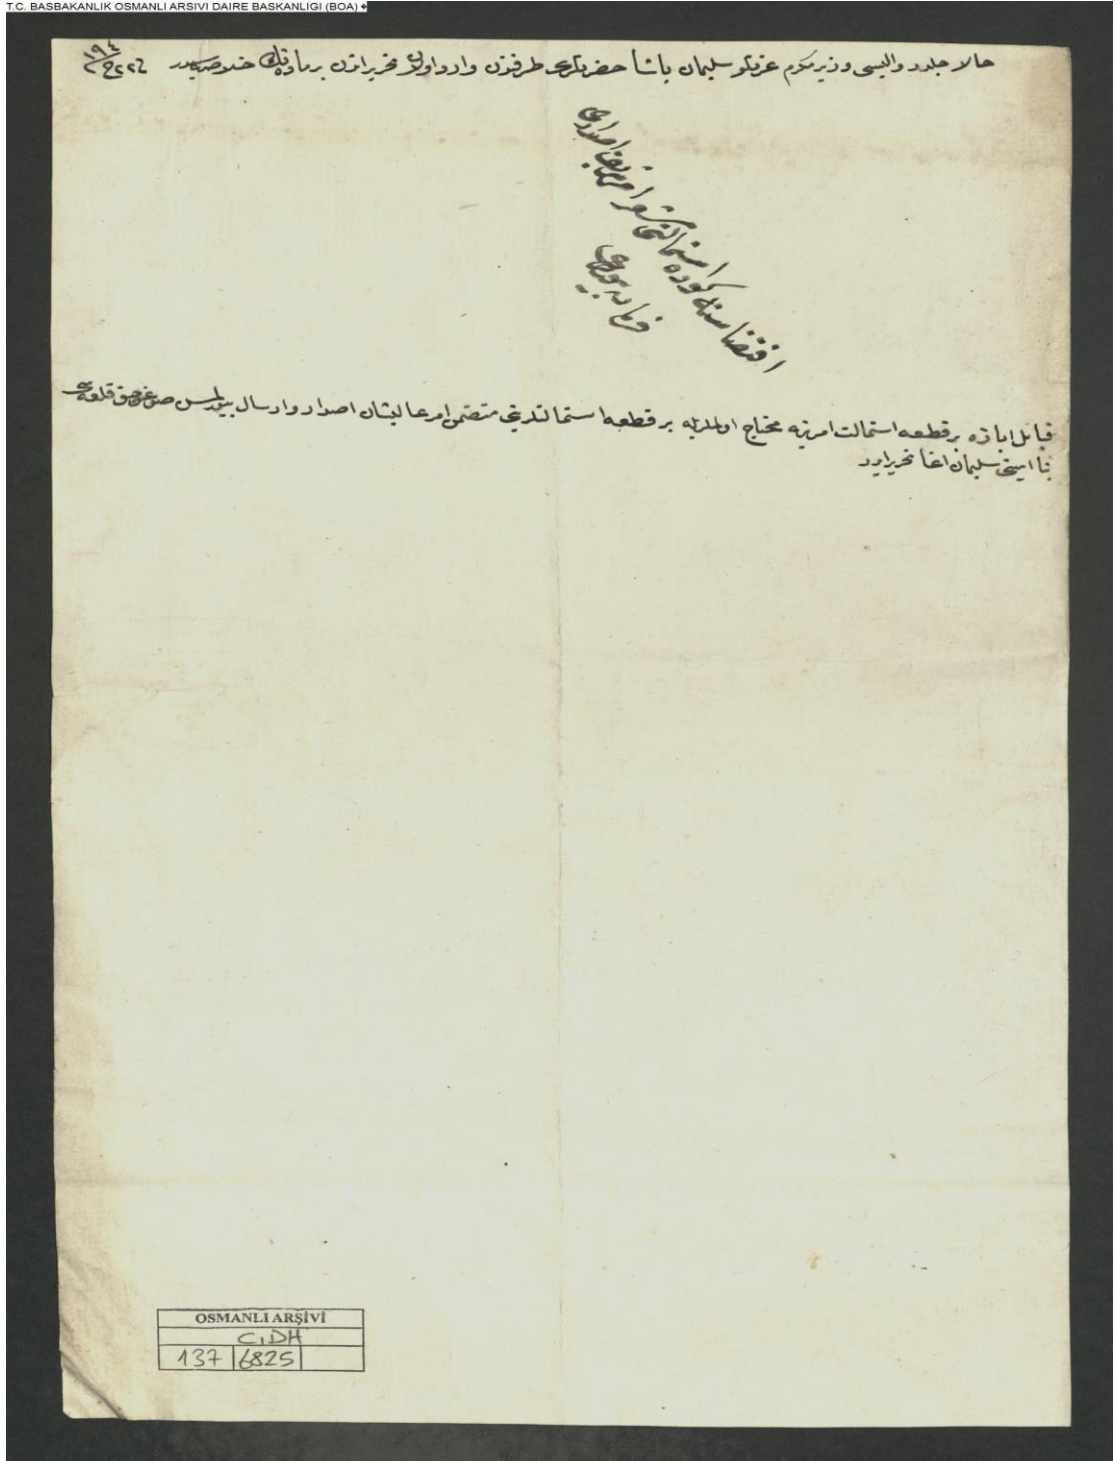 T.C. BASBAKANLIK OSMANLI ARSIVI DAIRE BASKANLIGI (BOA)
حالا چلدر والیسی وزیر مکرم عزتلو سلیمان پاشا حضرتلری طرفندن وارد اولان تحریراتدن بر ماده‌نك خلاصه‌سیدر
اقتضاسنه كوره استمالتی امر
قبائل ابازه بر قطعه استمالت امرینه محتاج اولملریله بر قطعه استمالتلرینی متضمن امر عالیشان اصدار و ارسال صوغوجق قلعه‌سی
بنا امینی سلیمان اغا تحریر ایدر
OSMANLI ARŞİVİ
C.DH
137 6825